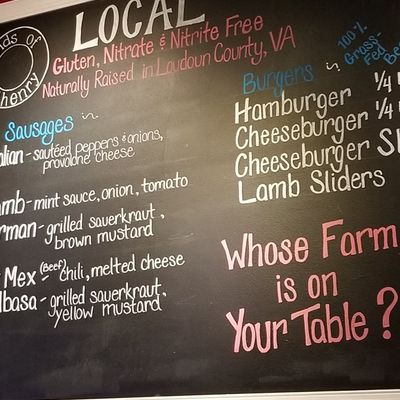 LOCAL
Gluten, Nitrate & Nitrite Free
Naturally Raised in Loudoun County, VA
nds of
henry
Sausages
alian - sautéed peppers & onions,
provolone cheese
mb - mint sauce, onion, tomato
rman - grilled sauerkraut,
brown mustard
Mex (Beef) - chili, melted cheese
lbasa - grilled sauerkraut,
yellow mustard
Burgers
100%
Grass-
Fed
Bee
Hamburger 1/4
Cheeseburger 1/4
Cheeseburger Sl
Lamb Sliders
Whose Farm
is on
Your Table?